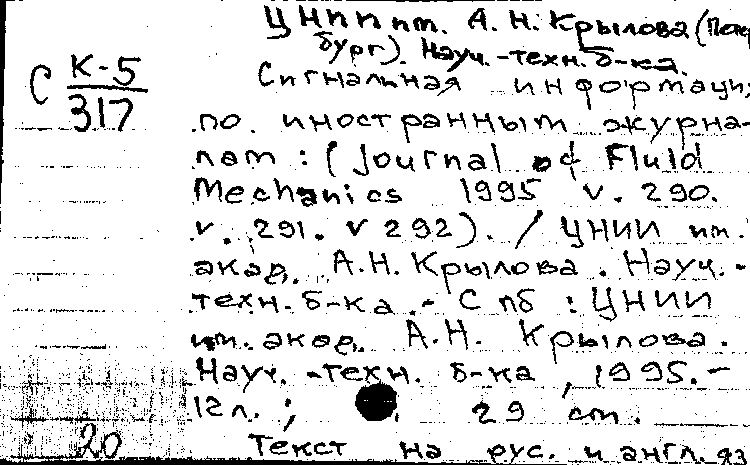 ЦНИИ им. А. Н. Крылова (Петер
бург). Науч.-техн. б-ка.
С К-5
317
Сигнальная информаци
по иностранным журна-
лам : (Journal of Fluid
Mechanics 1995 v. 290.
v. 291. v 292). / ЦНИИ им.
акад. А.Н. Крылова. Науч.-
техн. б-ка. - Спб : ЦНИИ
им. акад. А.Н. Крылова.
Науч. -техн. б-ка, 1995. -
12 л. ; 29 см.
20
Текст на рус. и англ. яз